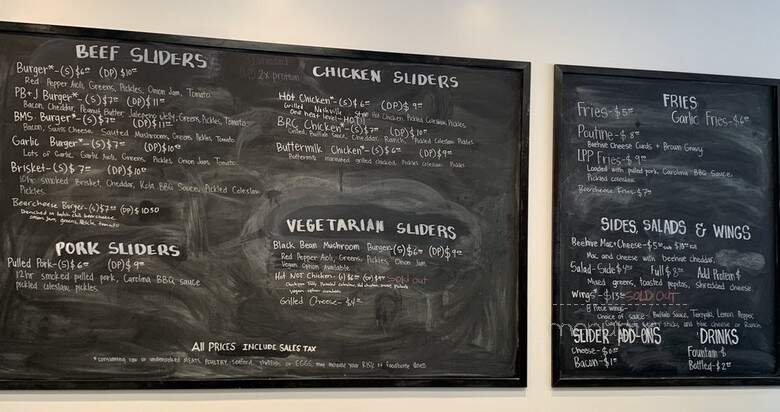 BEEF SLIDERS
Burger*-(S)$6⁰⁰ (DP)$10⁰⁰
Red Pepper Aioli, Greens, Pickles, Onion Jam, Tomato
PB+J Burger*-(S)$7⁰⁰ (DP)$11⁰⁰
Bacon, Cheddar, Peanut Butter, Jalapeno Jelly, Greens, Pickles, Tomato
BMS Burger*-(S)$7⁰⁰ (DP)$11⁰⁰
Bacon, Swiss Cheese, Sauteed Mushrooms, Greens, Pickles, Tomato
Garlic Burger*-(S)$7⁰⁰ (DP)$10⁰⁰
Lots of Garlic, Garlic Aioli, Greens, Pickles, Onion Jam, Tomato
Brisket-(S)$7⁰⁰ (DP)$10⁰⁰
smoked Brisket, Cheddar, Kola BBQ Sauce, Pickled Celeslaw
Pickles
Beercheese Burger-(S)$7⁰⁰ (DP)$10.50
Drenched in beercheese
onion jam, greens, pickle, tomato
PORK SLIDERS
Pulled Pork-(S)$6⁰⁰ (DP)$9⁰⁰
12hr smoked pulled pork, Carolina BBQ sauce
pickled celeslaw, pickles.
2x protein
CHICKEN SLIDERS
Hot Chicken*-(S)$6⁰⁰ (DP)$9⁰⁰
Grilled Nashville Style Hot Chicken, Pickled Celeslaw, Pickles
One heat level-HOT!
BRC Chicken*-(S)$7⁰⁰ (DP)$10⁰⁰
Grilled, Buffalo Sauce, Cheddar, Ranch, Pickled Celeslaw, Pickles
Buttermilk Chicken*-(S)$6⁰⁰ (DP)$9⁰⁰
Buttermilk marinated grilled chicken, Pickled Celeslaw, Pickles
VEGETARIAN SLIDERS
Black Bean Mushroom Burger-(S)$6⁰⁰ (DP)$9⁰⁰
Red Pepper Aioli, Greens, Pickles, Onion Jam
Vegan Option Available
Hot Not Chicken-(S)$6⁰⁰ (DP)$9⁰⁰ SOLD OUT
Pickles
vegan option available
Grilled Cheese-$4⁰⁰
All PRICES INCLUDE SALES TAX
*consuming raw or undercooked MEATS, POULTRY, seafood, shellfish, or EGGS may increase your RISK of foodborne illness
FRIES
Fries-$5⁰⁰ Garlic Fries-$6⁰⁰
Poutine-$8⁰⁰
Beehive Cheese Curds + Brown Gravy
LPP Fries-$9⁰⁰
Loaded with pulled pork, Carolina BBQ Sauce,
Pickled celeslaw
Beercheese Fries-$7⁰⁰
SIDES, SALADS & WINGS
Beehive Mac+Cheese-$5⁰⁰
Mac and cheese with beehive cheddar,
Salad-Side $4⁰⁰ Full $8⁰⁰ Add Protein $
Mixed greens, toasted pepitas, shredded cheese
Wings*-$13⁰⁰ SOLD OUT
8 Piece wings
Choice of sauce- Buffalo Sauce, Teriyaki, Lemon Pepper,
sticks and blue cheese or Ranch
SLIDER ADD-ONS
Cheese-$0
Bacon-$1⁰⁰
DRINKS
Fountain-$
Bottled-$2